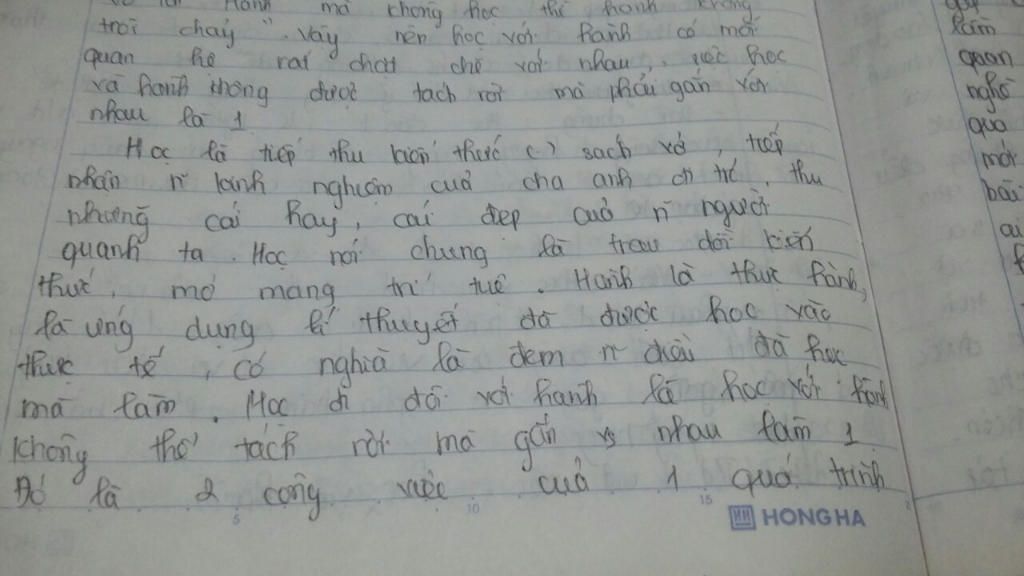 hành mà không học thì hành không
trôi chảy". Vậy nên học với hành có mối
quan hệ rất chặt chẽ với nhau, việc học
và hành không được tách rời mà phải gắn với
nhau là 1
Học là tiếp thu kiến thức (-) sách vở tiếp
nhận n~ kinh nghiệm của cha anh đi trc, thu
nhưng cái hay, cái đẹp của n~ người
quanh ta. Học nói chung là trau dồi kiến
thức, mở mang trí tuệ. Hành là thực hành,
là ứng dụng lí thuyết đã được học vào
thực tế, có nghĩa là đem n~ điều đã học
mà làm. Học đi đôi với hành là học với hành
không thể tách rời mà gắn vs nhau làm 1
Đó là 2 công việc của 1 quá trình
5 10 15
HONG HA
làm
quan
nghề
qua
một
bài
ai